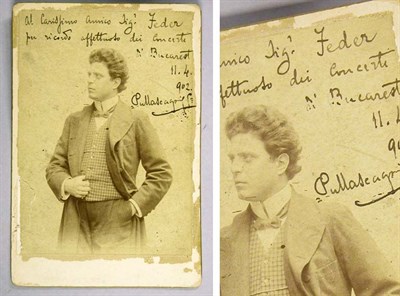 Al Carissimo Amico Sigr Feder
per ricordo affettuoso dei Concerti
di Bucarest
11.4.
902.
P. Mascagni
mico Sigr Feder
affettuoso dei Concerti
di Bucarest
11.4
90
P. Mascagni